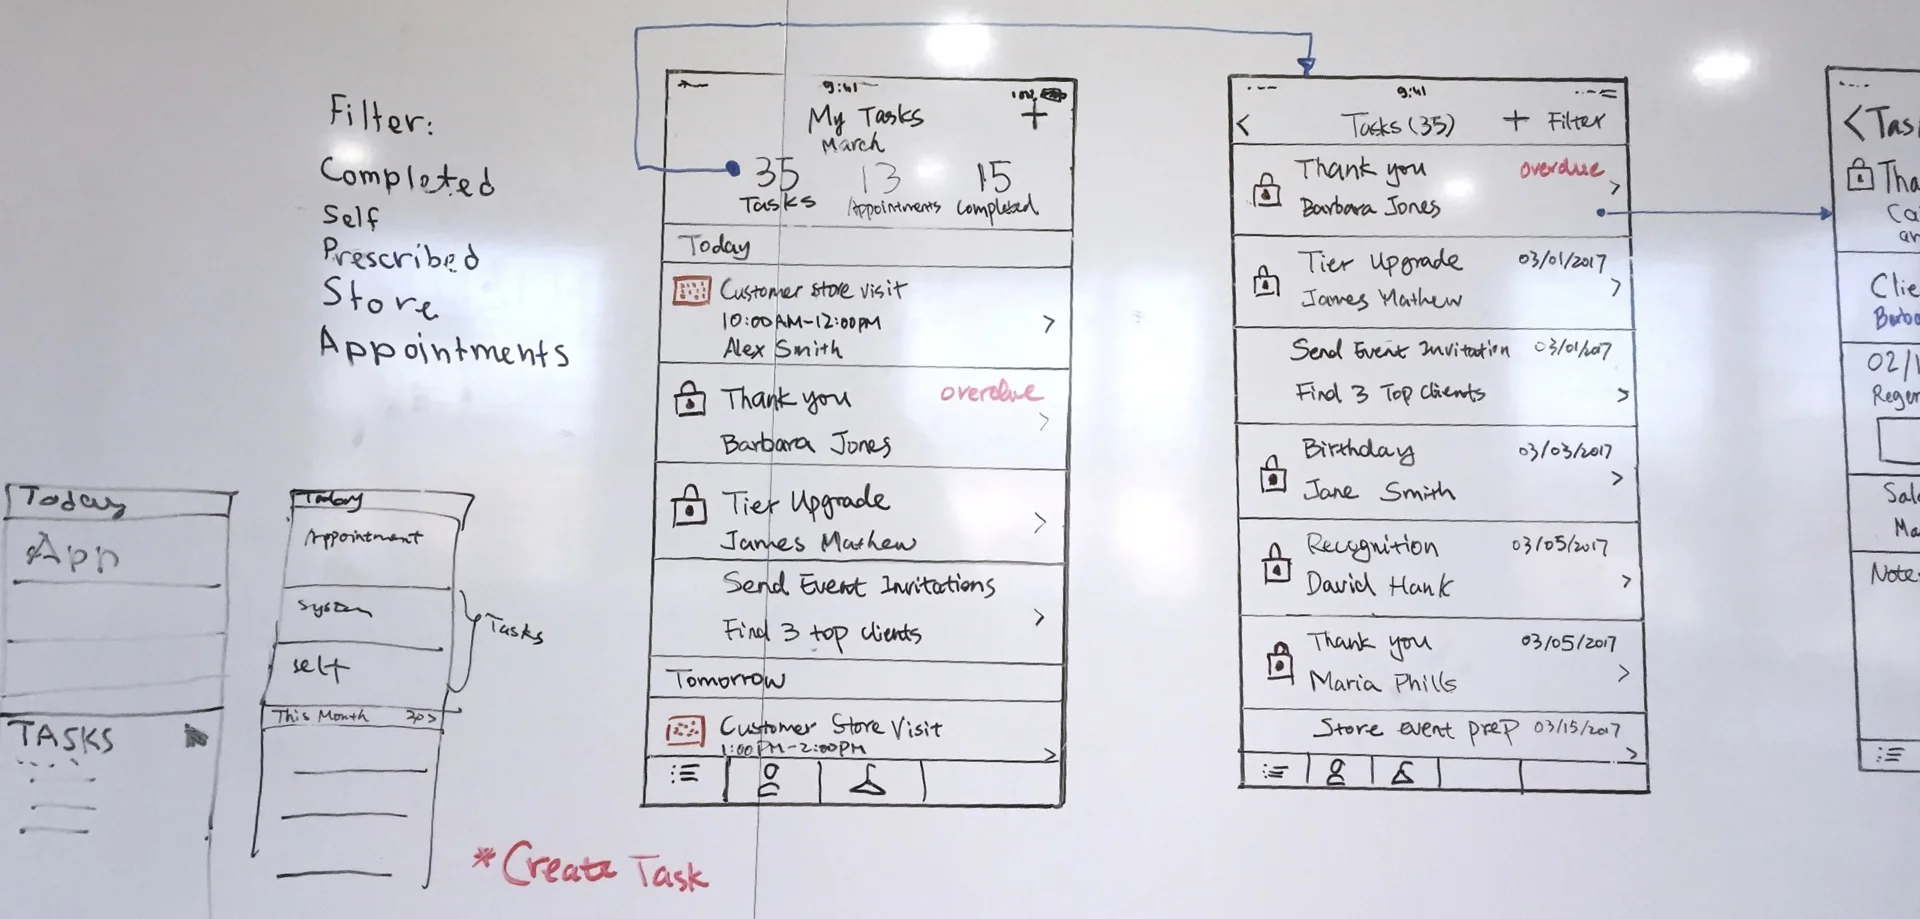 Filter:
Completed
Self
Prescribed
Store
Appointments
Today
App
TASKS
Today
Appointment
System
self
Tasks
This Month 20>
*Create Task
9:41
100%
My Tasks +
March
35 13 15
Tasks Appointments Completed
Today
Customer store visit
10:00AM-12:00PM >
Alex Smith
Thank you overdue
>
Barbara Jones
Tier Upgrade
>
James Mathew
Send Event Invitations
>
Find 3 top clients
Tomorrow
Customer Store Visit
1:00PM-2:00PM >
9:41
< Tasks (35) + Filter
Thank you overdue
>
Barbara Jones
Tier Upgrade 03/01/2017
James Mathew >
Send Event Invitation 03/01/2017
Find 3 Top Clients >
Birthday 03/03/2017
Jane Smith >
Recognition 03/05/2017
David Hank >
Thank you 03/05/2017
Maria Phills >
Store event prep 03/15/2017
>
<Tas
Tha
Ca
an
Clie
Barba
02/1
Reger
Sale
Ma
Note